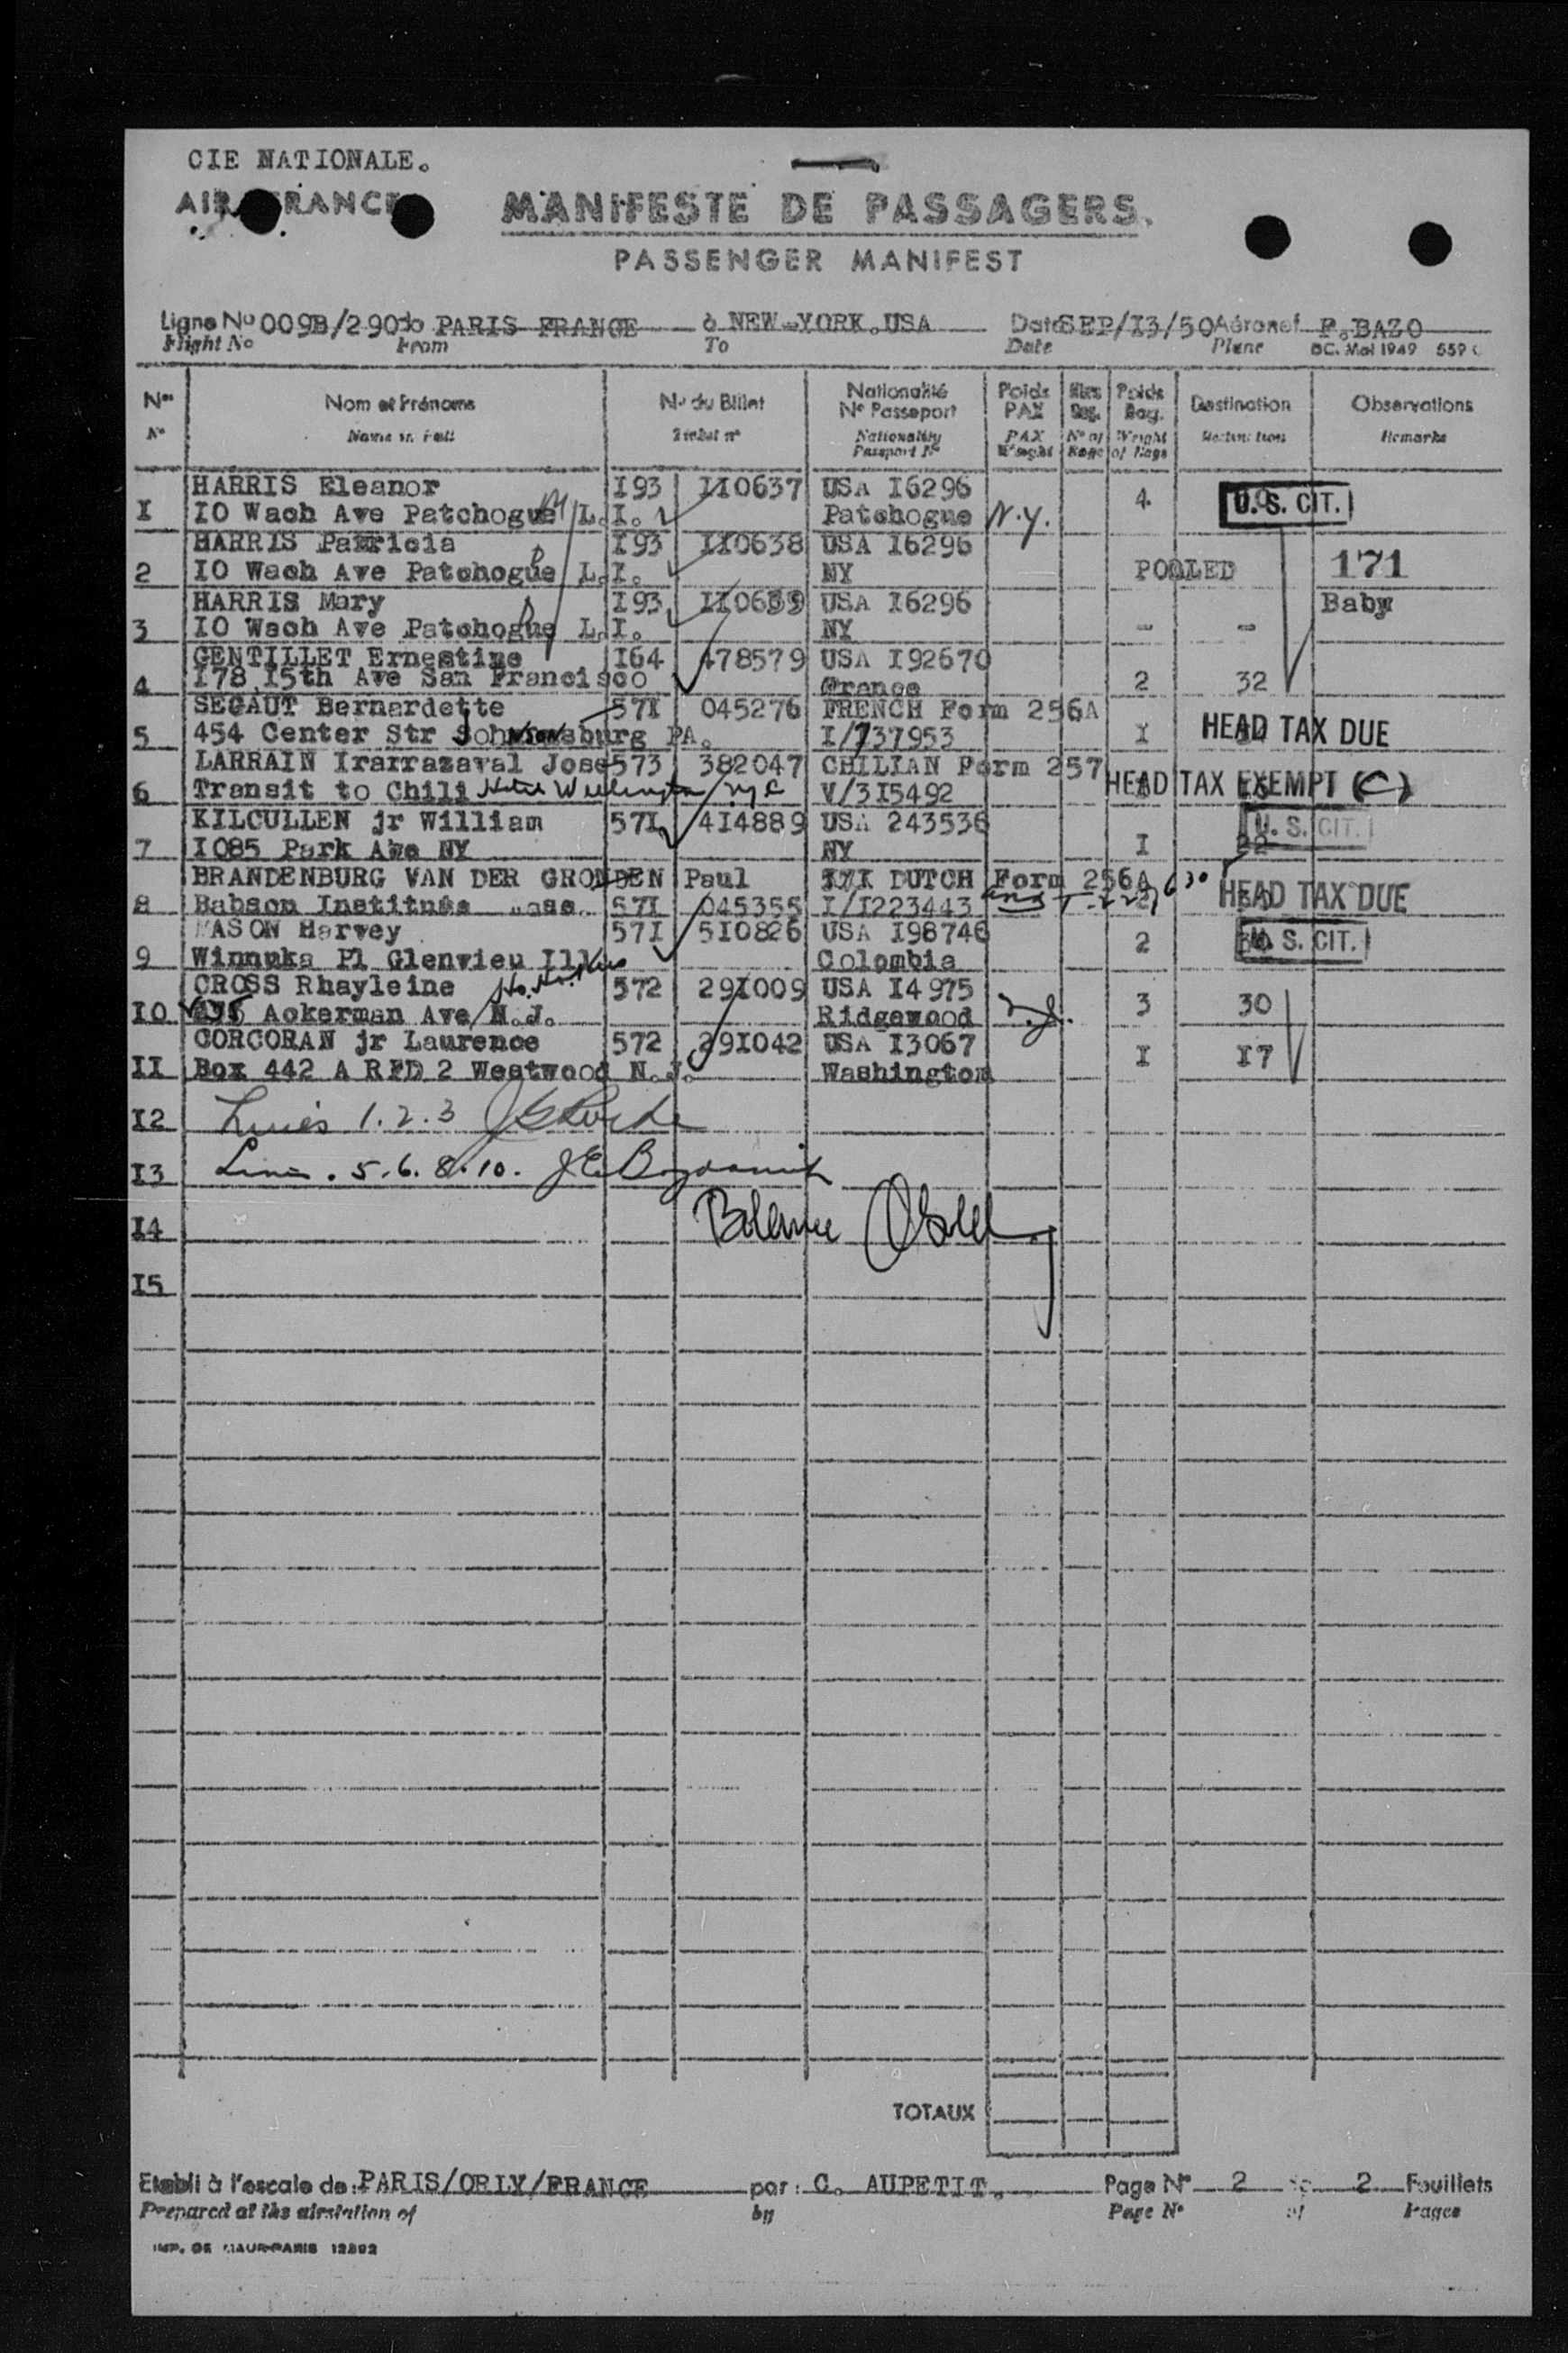 CIE NATIONALE.
AIR FRANCE
MANIFESTE DE PASSAGERS.
PASSENGER MANIFEST
Ligne No 009B/290 de PARIS FRANCE à NEW-YORK.USA Date SEP/I3/50 Aéronef F.BAZO
Flight No From To Date Plane BC. Mai 1949 559
Nos Nom et Prénoms No du Billet Nationalité Poids Poids Destination Observations
No Passeport PAX Bag.
No Name in Full Ticket no Nationality PAX No of Weight Remarks
Passport No Weight Bags of Bags
HARRIS Eleanor I93 II0637 USA I6296 4 U.S. CIT.
I IO Wach Ave Patchogue L.I. Patchogue N.Y.
HARRIS Patricia I93 II0638 USA I6296
2 IO Wach Ave Patchogue L.I. NY POOLED 171
HARRIS Mary I93 II0639 USA I6296 Baby
3 IO Wach Ave Patchogue L.I. NY - -
GENTILLET Ernestine I64 478579 USA I92670
4 I78 I5th Ave San Francisco France 2 32
SEGAUT Bernardette 57I 045276 FRENCH Form 256A
5 454 Center Str Johnsonburg PA. I/737953 I HEAD TAX DUE
LARRAIN Irarrazaval Jose 573 382047 CHILIAN Form 257
6 Transit to Chili Hotel Wellington NYC V/3I5492 HEAD TAX EXEMPT (C)
KILCULLEN jr William 57I 4I4889 USA 243536 U.S. CIT.
7 I085 Park Ave NY NY I 22
BRANDENBURG VAN DER GRONDEN Paul DUTCH Form 256A
8 Babson Institute Mass. 57I 045355 I/I223443 HEAD TAX DUE
MASON Harvey 57I 5I0826 USA I98746 2 U.S. CIT.
9 Winnuka Pl Glenvieu Ill Colombia
CROSS Rhayleine Ho-Ho-Kus 572 29I009 USA I4975 3 30
IO Ackerman Ave N.J. Ridgewood N.J.
CORCORAN jr Laurence 572 29I042 USA I3067 I I7
II Box 442 A RFD 2 Westwood N.J. Washington
I2 Lines 1.2.3
I3 Lines . 5.6.8.10.
I4 Balance
I5
TOTAUX
Etabli à l'escale de: PARIS/ORLY/FRANCE par: C. AUPETIT. Page No 2 2 Feuillets
Prepared at the airstation of by Page No of Pages
IMP. DE MAUR-PARIS 12892